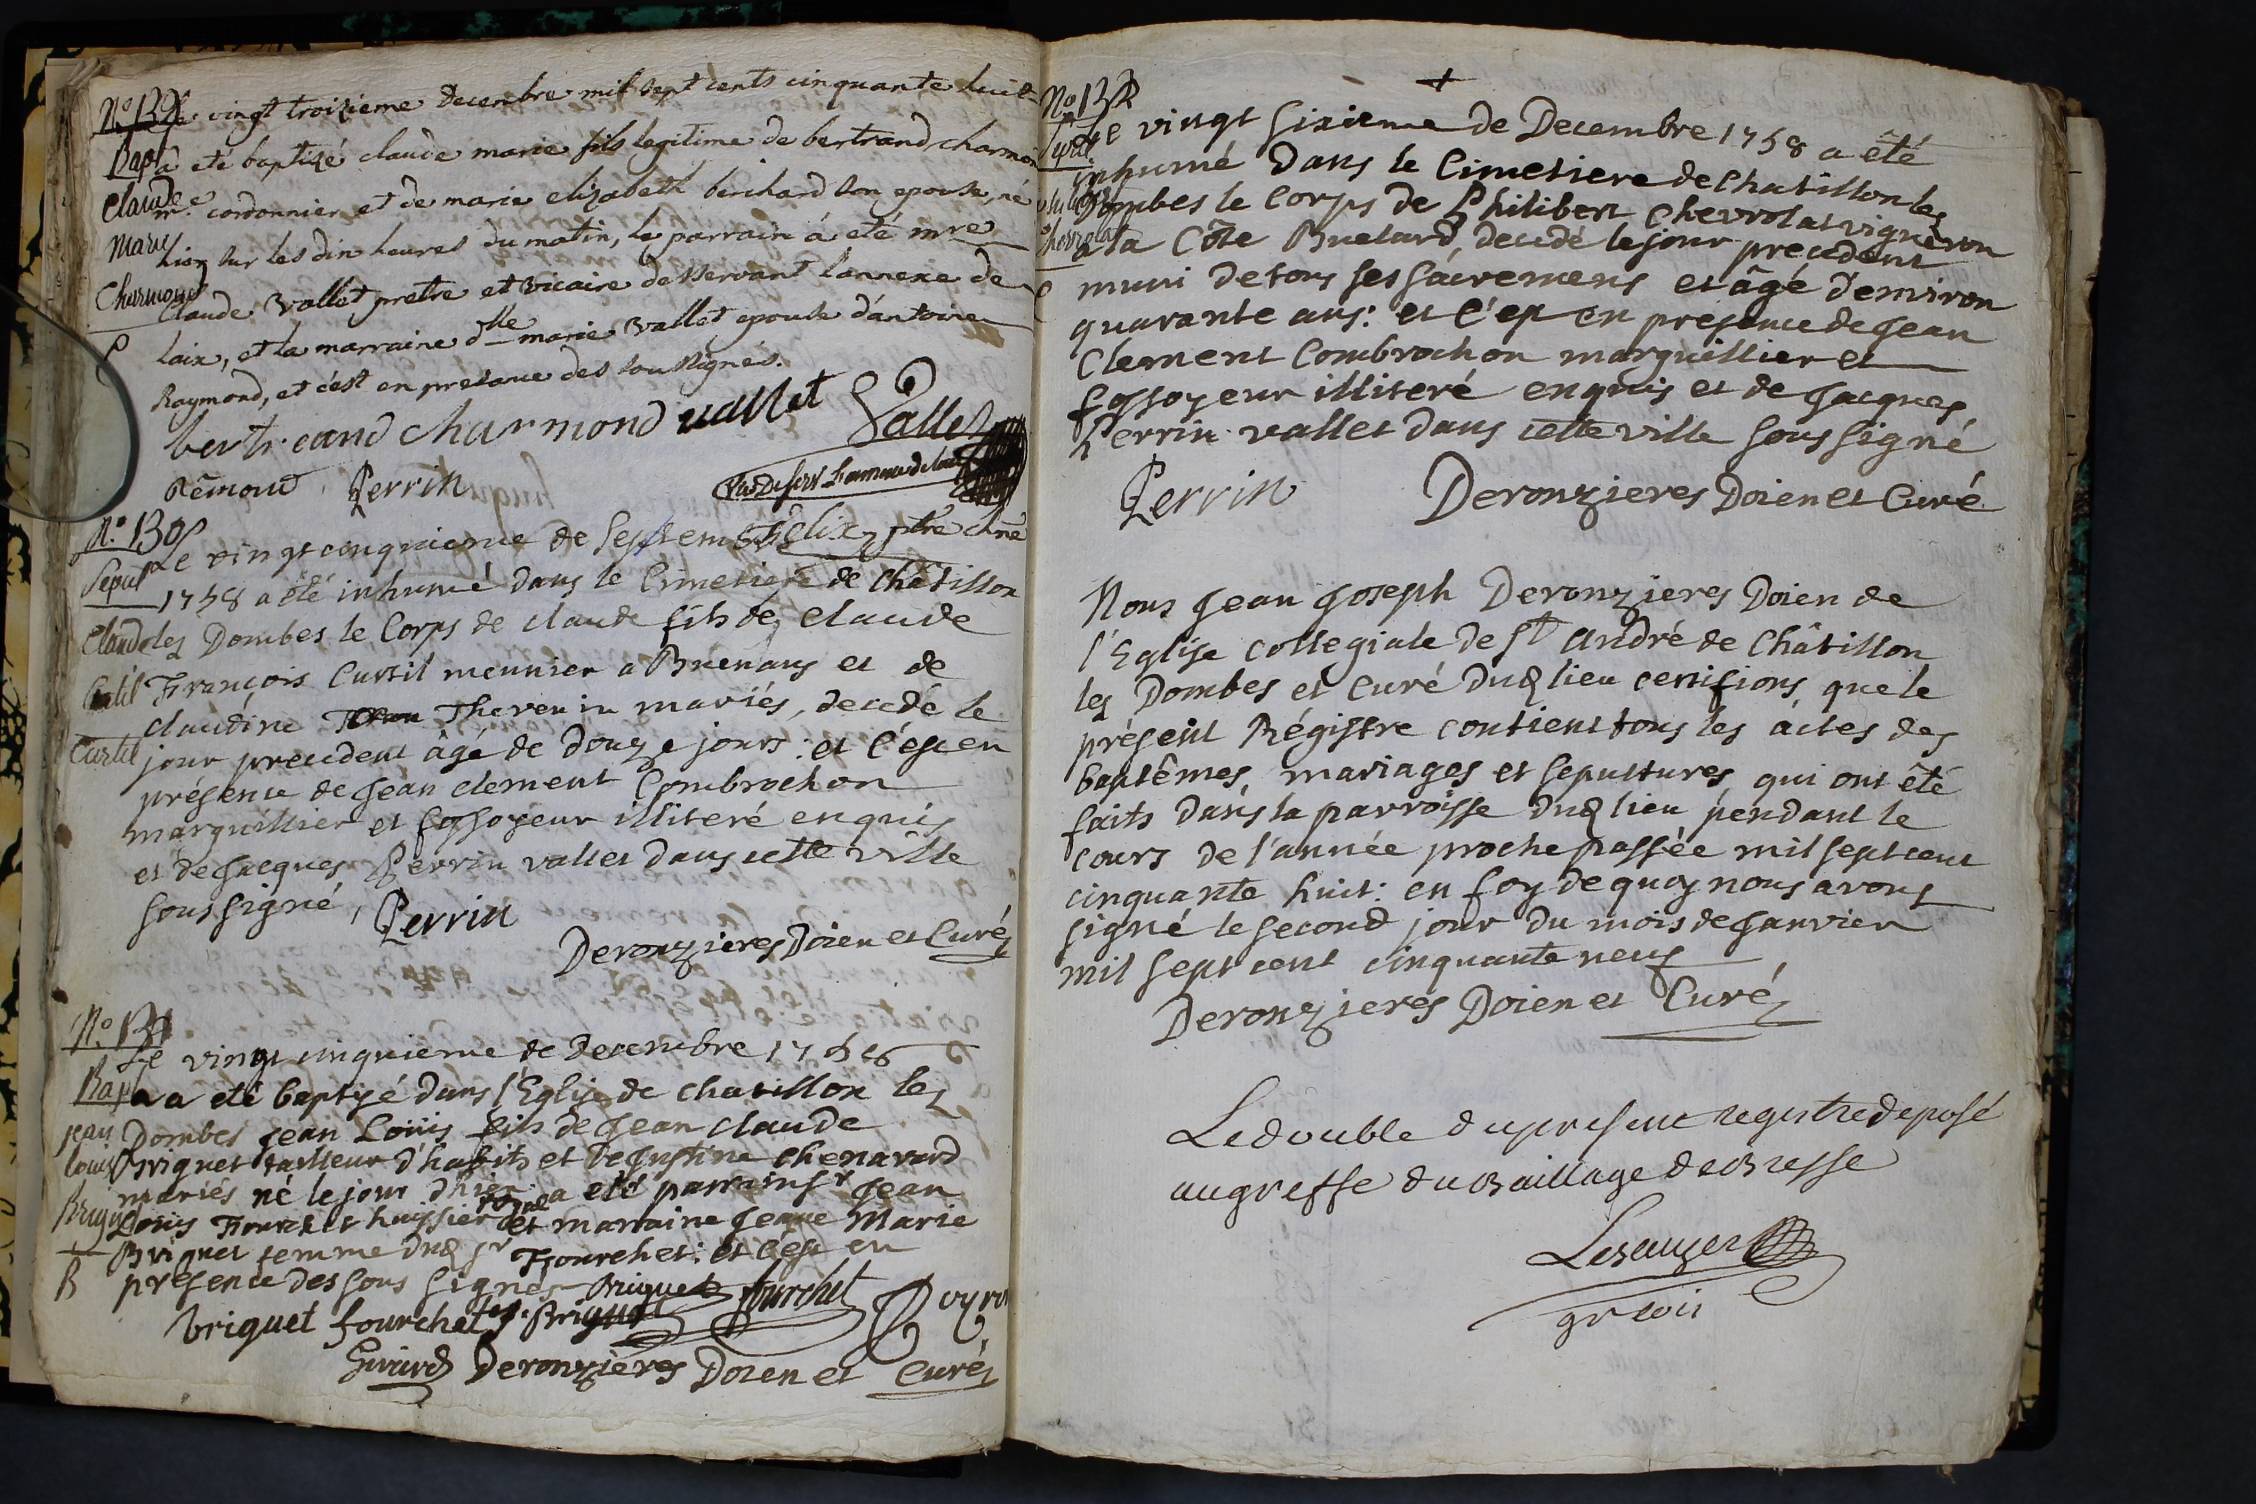 Le vingt troizieme Decembre mil sept cents cinquante huit
Bapt a ete baptizé claude marie fils legitime de bertrand charmon
Claude me. cordonnier et de marie elizabeth berchard son epouse, né
Marie hier sur les dix heures du matin, le parrain á eté mre
Charmond claude Vallet pretre et vicaire desservant l'annexe de
P laix, et la marraine dlle marie Vallet epouse d'antoine
Raymond, et c'est en presance des soussignés.
bertreand charmond vallet Vallet
Rêmond Perrin
N.º 130
Le vingt cinquieme de Septembre Elix ptre chne
Sepul 1758 a été inhumé dans le Cimetiere de Châtillon
Claude les Dombes le Corps de claude fils de Claude
François Curtil meunier a Buenans et de
claudine Thevenin mariés, decedé le
Curtil jour precedent âgé de douze jours: et c'est en
présence de Jean clement Combrochon
marguillier et fossoyeur illiteré enquis
et de Jacques Perrin vallet dans cette ville
soussigné, Perrin
Deronzieres Doien et Curé
N.º 131
Le vingt cinquieme de Decembre 1758
Bapt a eté baptisé dans l'Eglise de chatillon les
jean Dombes Jean Loüis fils de Jean claude
louis Briquet tailleur d'habits et de Justine chenavard
mariés né le jour d'hier a eté parrain sr Jean
Briquet Louis Fourchet huissier royal et marraine Jeane Marie
Briquet femme dud sr Fourchet: et c'est en
B présence des sous signés Briquet fourchet
briquet fourchet J. Briquet
Girard Deronzieres Doien et Curé
Nº 132
Le vingt sixieme de Decembre 1758 a êté
Sepul inhumé dans le Cimetiere de Chatillon les
philibert Dombes le Corps de Philibert Chevrolat vigneron
Chevrolat a la Côte Buelard, decedé le jour precedent
muni de tous ses sácremens et âgé d'environ
quarante ans: et c'est en presence de Jean
Clement Combrochon marguillier et
fossoyeur illiteré enquis et de Jacques
Perrin vallet dans cette ville soussigné
Perrin Deronzieres Doien et Curé
Nous Jean Joseph Deronzieres Doien de
l'Eglise collegiale de St André de Châtillon
les Dombes et Curé dud lieu certifions que le
présent Régistre contient tous les áctes des
baptêmes, mariages et sepultures qui ont êté
faits dans la parroisse dud lieu pendant le
cours de l'année proche passée mil sept cent
cinquante huit: en foy de quoy nous avons
signé le second jour du mois de Janvier
mil sept cent cinquante neuf
Deronzieres Doien et Curé
Le double du present registre deposé
au greffe du Baillage de Bresse